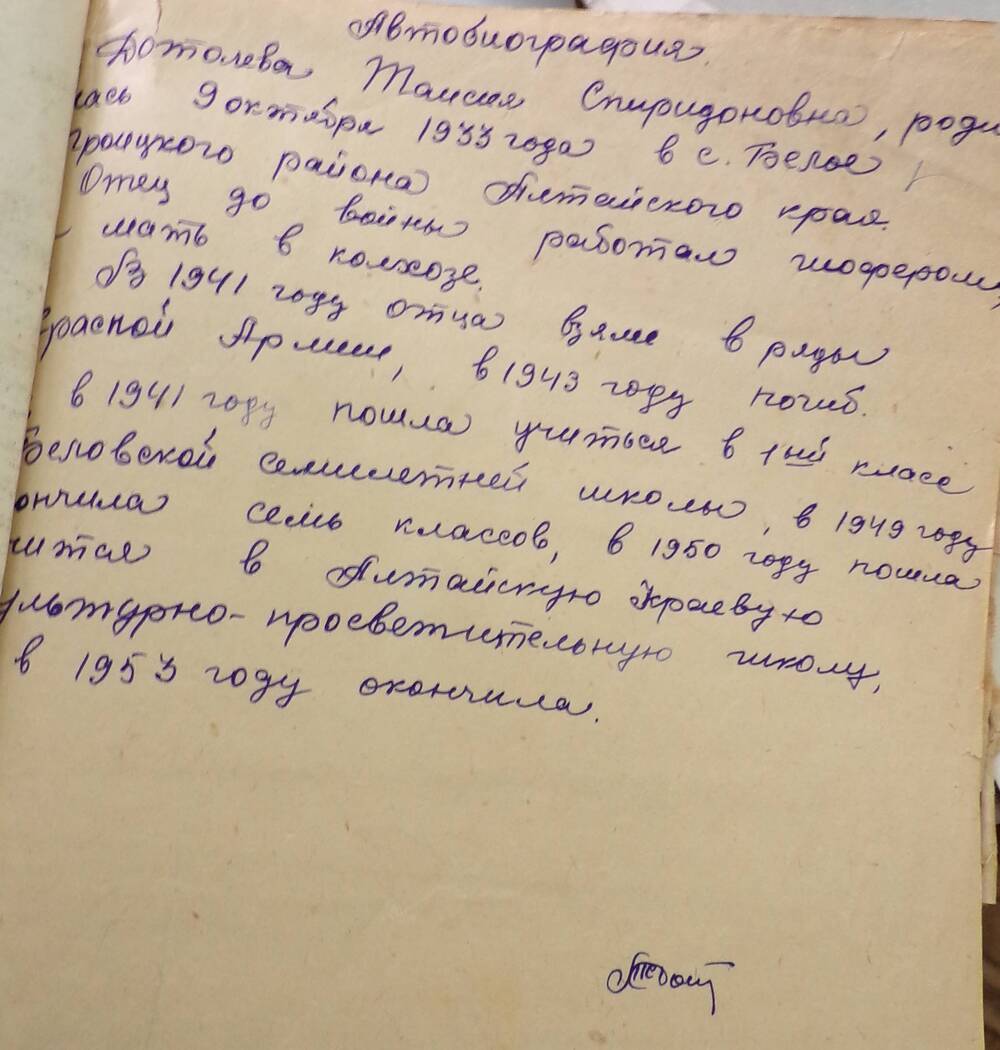 Автобиография.
Дотолева Таисия Спиридоновна, роди
лась 9 октября 1933 года в с. Белое
троицкого района Алтайского края.
Отец до войны работал шофером,
– мать в колхозе.
В 1941 году отца взяли в ряды
красной Армии, в 1943 году погиб.
в 1941 году пошла учиться в 1ый класс
Беловской семилетней школы, в 1949 году
ончила семь классов, в 1950 году пошла
чится в Алтайскую Краевую
ультурно-просветительную школу,
в 1953 году окончила.